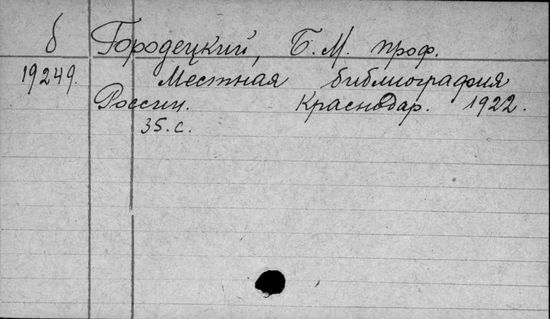 б Городецкий, Б. М. проф.
19249. Местная библиография
России. Краснодар. 1922.
35. с.